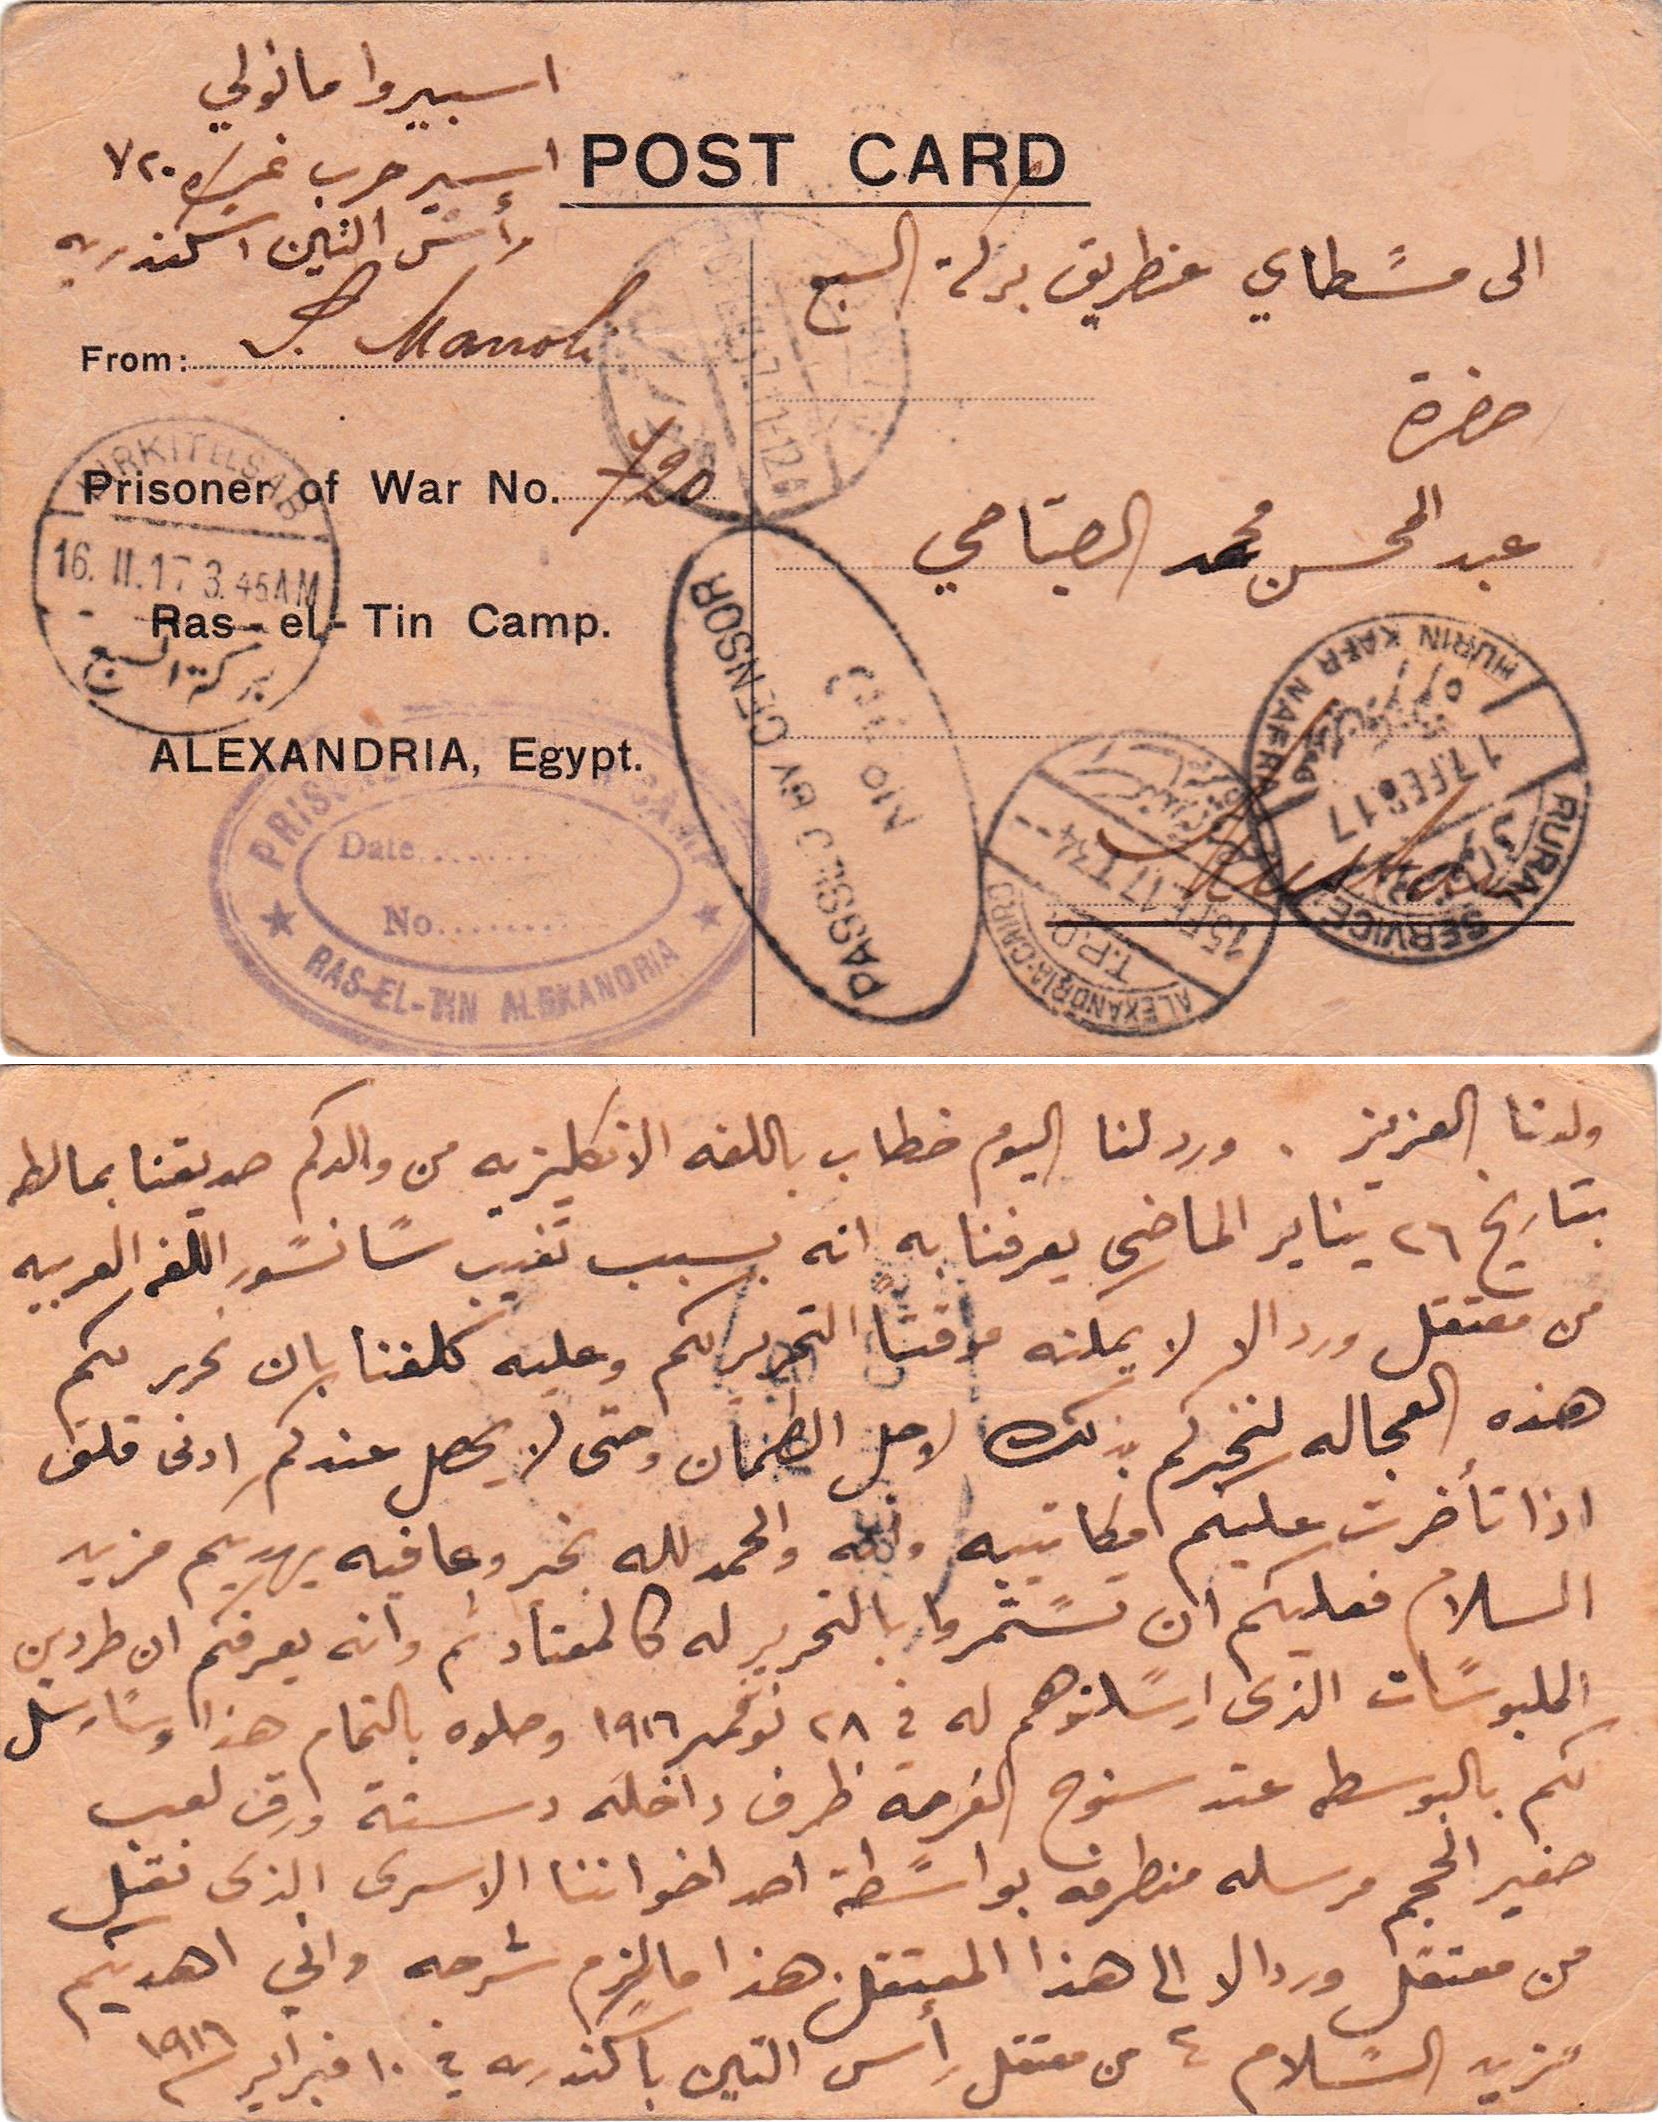 اسبيروا مانولي
اسير حرب نمرة ٧٢٠
رأس التين اسكندريه
POST CARD
From: S. Manoli
Prisoner of War No. 720
Ras-el-Tin Camp.
ALEXANDRIA, Egypt.
BIRKIT EL SAB
16. II. 17 3.45AM
بركة السبع
PRISONERS CAMP
Date
No.
RAS-EL-TIN ALEXANDRIA
الى مسطاي عنطريق بركة السبع
حضرة
عبد المحسن محمد الصباحي
PASSED BY CENSOR
No
ALEXANDRIA-CAIRO
T.P.O.
15 FE 17
HURIN KAFR NAFRA
17.FEB.17
RURAL SERVICE
ولدنا العزيز . ورد لنا اليوم خطاب باللغه الانكليزيه من والدكم صديقنا بمالطه
بتاريخ ٢٦ يناير الماضى يعرفنا به انه بسبب تغيب سانسور اللغه العربيه
من معتقل وردالا لا يمكنه موقتا التحرير لكم وعليه كلفنا بان نحرر لكم
هذه العجاله لنخبركم بذلك لاجل الطمان وحتى لا يحصل عندكم ادنى قلق
اذا تأخرت عليكم مكاتيبه وانه والحمد لله بخير وعافيه يهديكم مزيد
السلام فعليكم ان تستمروا بالتحرير له كالمعتاد ثم وانه يعرفكم ان طردين
الملبوسات الذى ارسلتوهم له في ٢٨ نوفمبر ١٩١٦ وصلوه بالتمام هذا وسارسل
لكم بالبوسطه عند سنوح الفرصة ظرف داخله دستة ورق لعب
صغير الحجم مرسله منطرفه بواسطة احد اخواننا الاسرى الذى نقل
من معتقل وردالا الى هذا المعتقل. هذا ما لزم شرحه واني اهديكم
مزيد السلام من معتقل رأس التين باسكندريه في ١٠ فبراير ١٩١٦